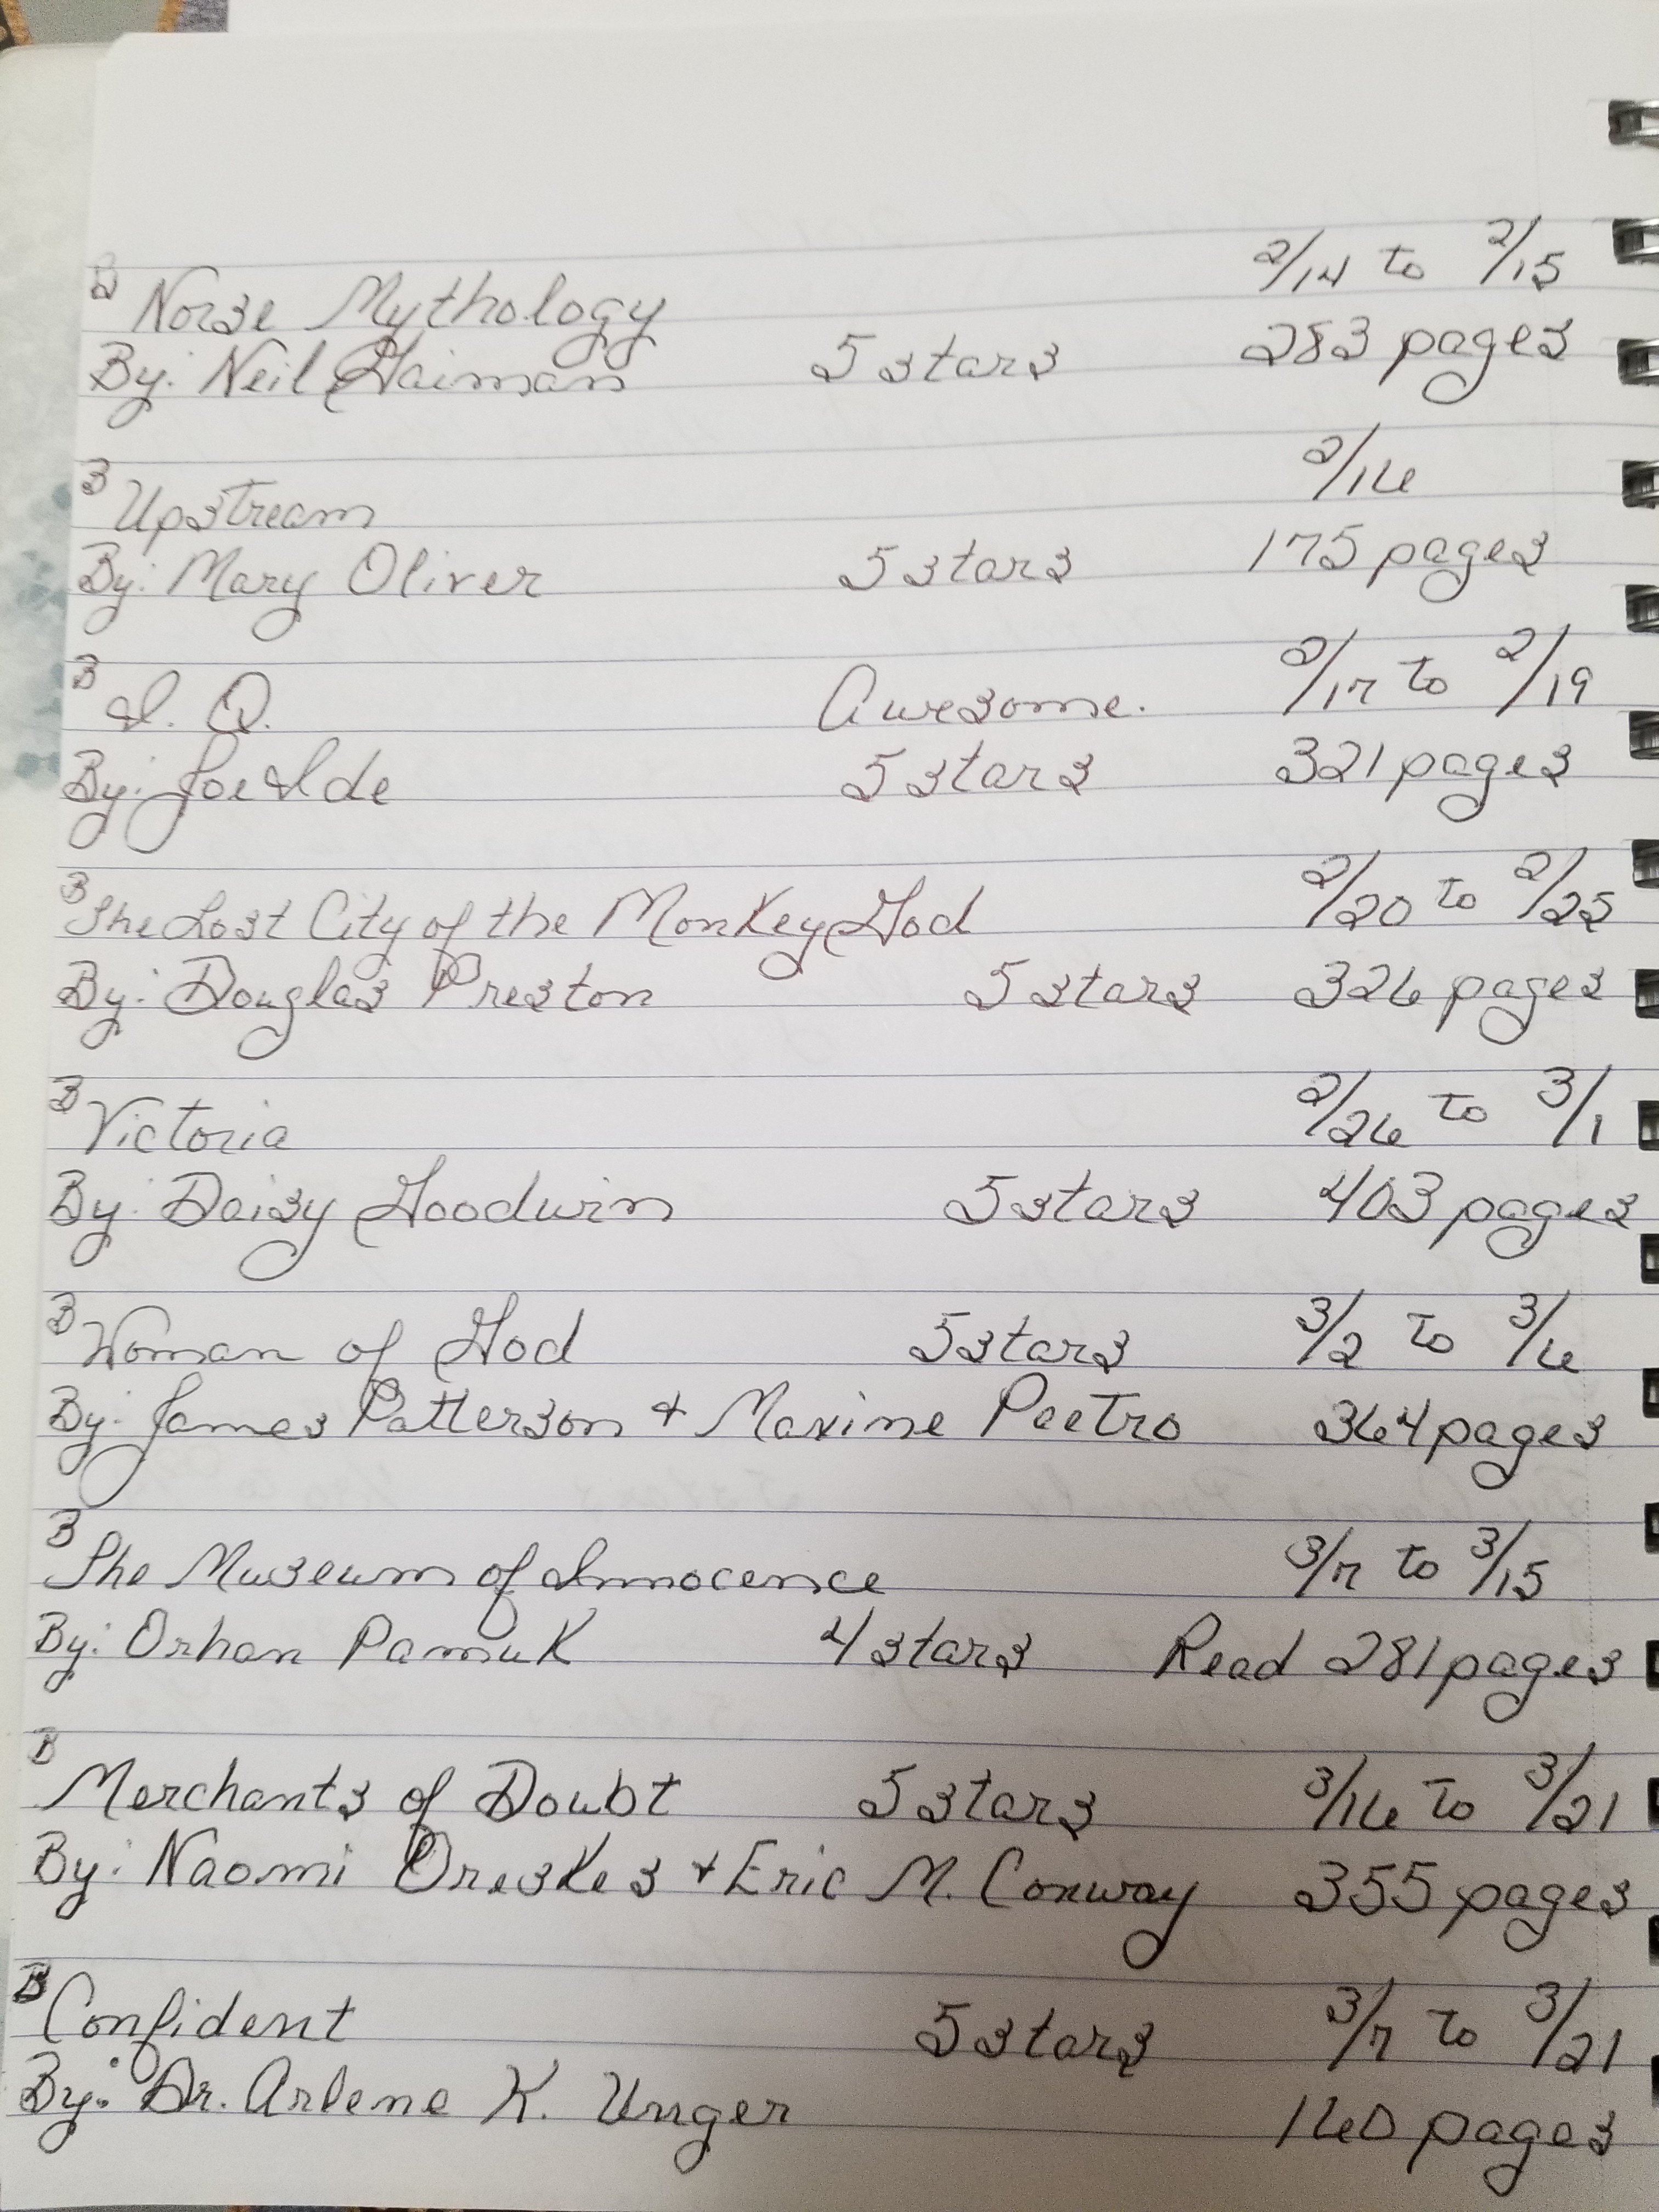 2/14 to 2/15
B Norse Mythology
By: Neil Gaiman 5 stars 283 pages
2/16
B Upstream
By: Mary Oliver 5 stars 175 pages
B I. Q. Awesome. 2/17 to 2/19
By: Joe Ide 5 stars 321 pages
B The Lost City of the Monkey God 2/20 to 2/25
By: Douglas Preston 5 stars 326 pages
B Victoria 2/26 to 3/1
By: Daisy Goodwin 5 stars 403 pages
B Woman of God 5 stars 3/2 to 3/6
By: James Patterson + Maxine Paetro 364 pages
B The Museum of Innocence 3/7 to 3/15
By: Orhan Pamuk 4 stars Read 281 pages
B Merchants of Doubt 5 stars 3/16 to 3/21
By: Naomi Oreskes + Eric M. Conway 355 pages
B Confident 5 stars 3/7 to 3/21
By: Dr. Arlene K. Unger 160 pages